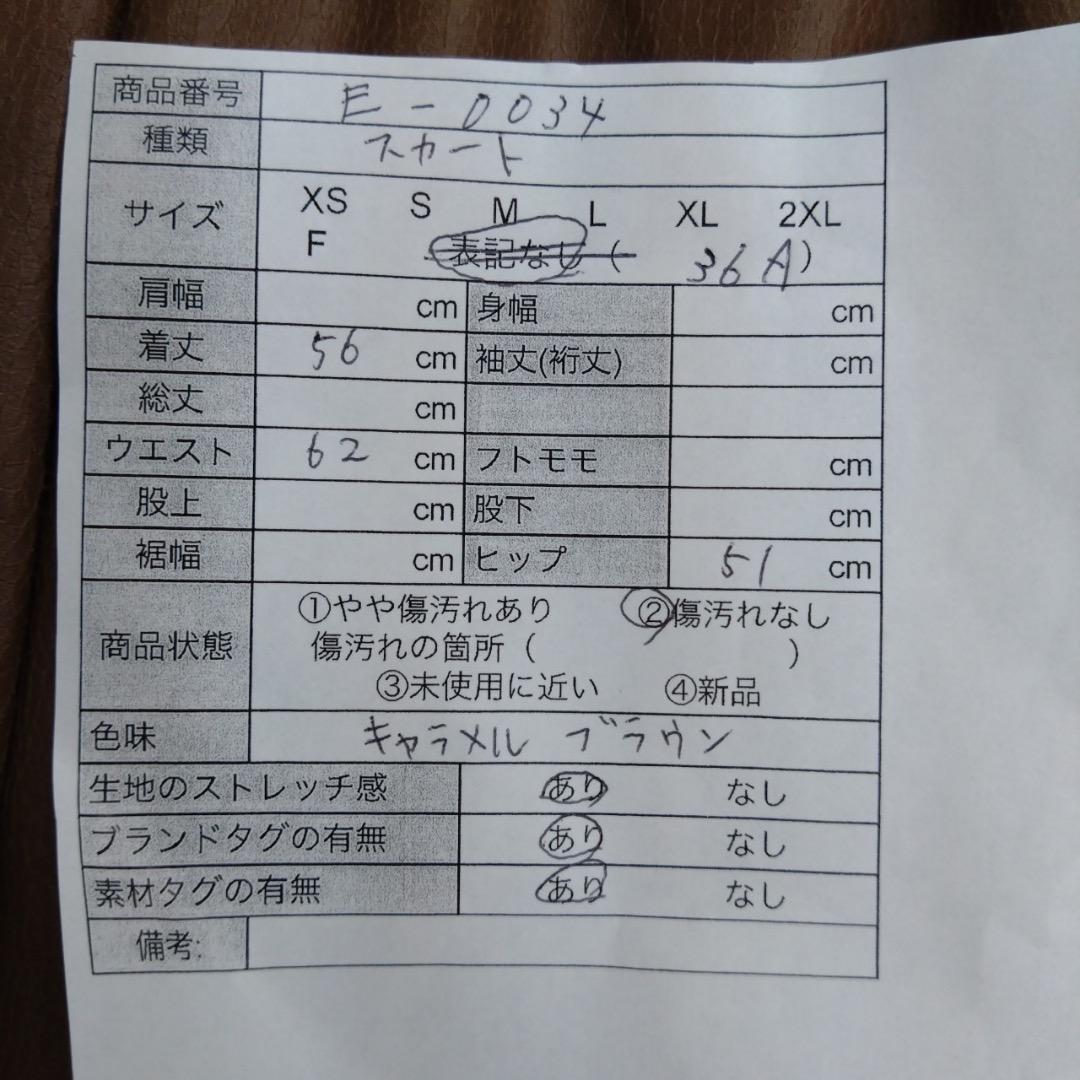 商品番号 E-0034
種類 スカート
サイズ XS S M L XL 2XL
F 表記なし ( 36A)
肩幅 cm 身幅 cm
着丈 56 cm 袖丈(裄丈) cm
総丈 cm
ウエスト 62 cm フトモモ cm
股上 cm 股下 cm
裾幅 cm ヒップ 51 cm
商品状態 ①やや傷汚れあり ②傷汚れなし
傷汚れの箇所 ( )
③未使用に近い ④新品
色味 キャラメル ブラウン
生地のストレッチ感 あり なし
ブランドタグの有無 あり なし
素材タグの有無 あり なし
備考: